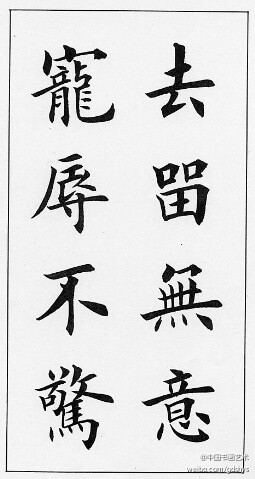 去留無意
寵辱不驚
@中国书画艺术
weibo.com/gdshys